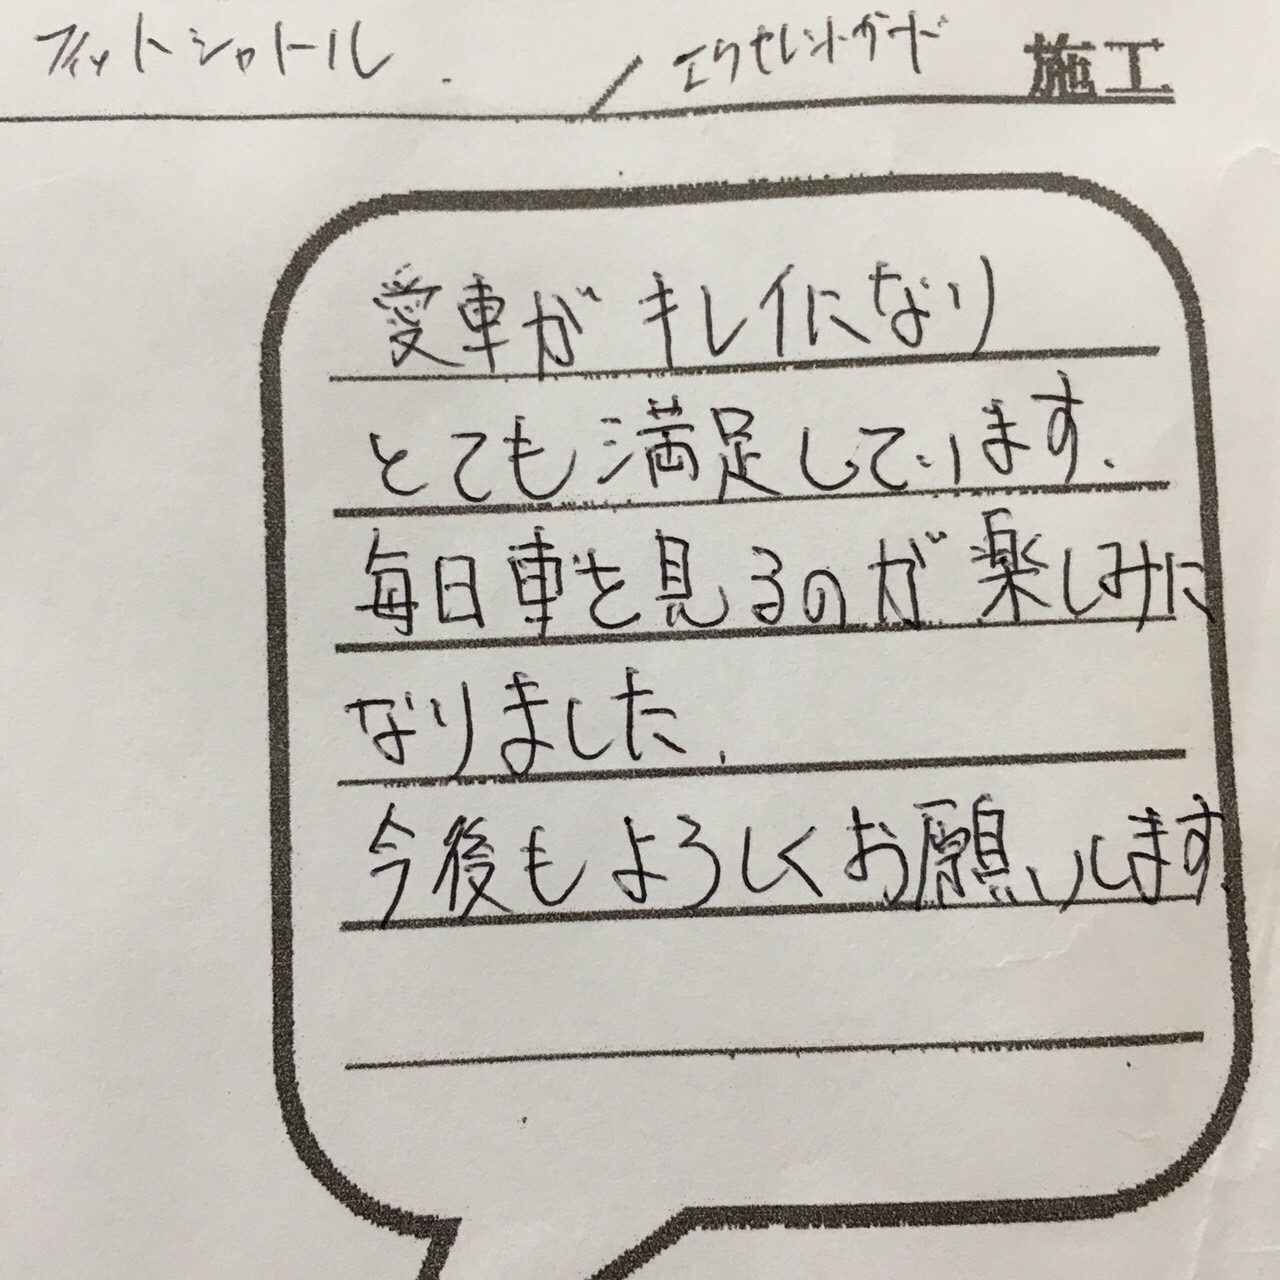 フィットシャトル / エクセレントガード 施工
愛車がキレイになり
とても満足しています.
毎日車を見るのが楽しみに
なりました.
今後もよろしくお願いします